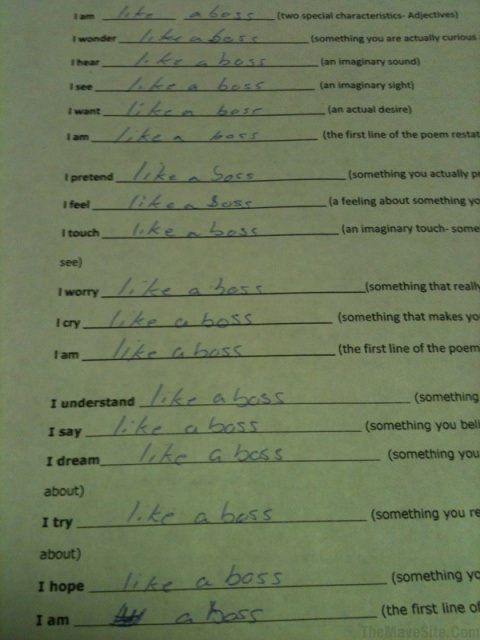 I am like a boss (two special characteristics- Adjectives)
I wonder like a boss (something you are actually curious
I hear like a boss (an imaginary sound)
I see like a boss (an imaginary sight)
I want like a boss (an actual desire)
I am like a boss (the first line of the poem restat
I pretend like a boss (something you actually p
I feel like a boss (a feeling about something yo
I touch like a boss (an imaginary touch- some
see)
I worry like a boss (something that really
I cry like a boss (something that makes yo
I am like a boss (the first line of the poem
I understand like a boss (something
I say like a boss (something you beli
I dream like a boss (something you
about)
I try like a boss (something you re
about)
I hope like a boss (something yo
I am a boss (the first line of
TheMaveSite.Com